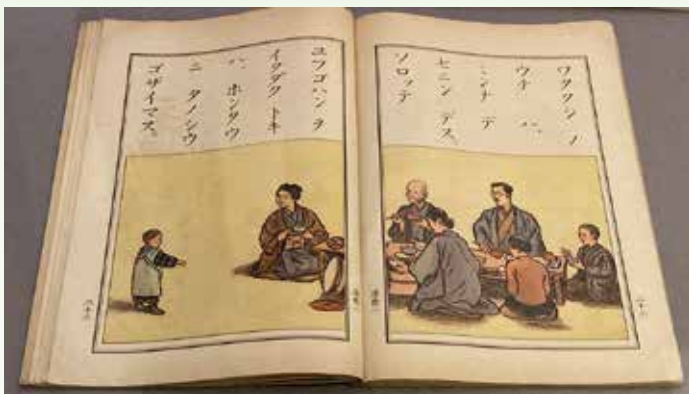 ワタクシ ノ
ウチ ハ、
ミンナ デ
七ニン デス。
ソロッテ
ユフゴハン ヲ
イタダク トキ
ハ、ホンタウ
ニ タノシウ
ゴザイマス。